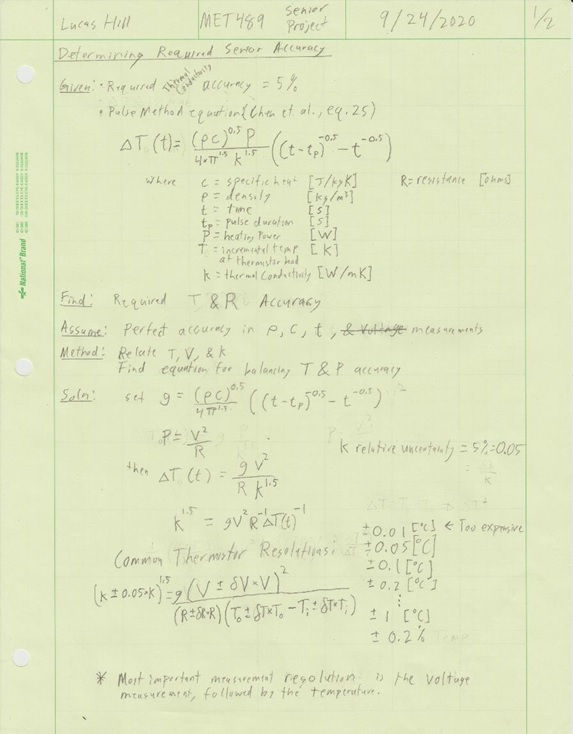 Lucas Hill MET489 Senior Project 9/24/2020 1/2
Determining Required Sensor Accuracy
Given: • Required Thermal Conductivity accuracy = 5%
• Pulse Method equation (Chen et. al., eq. 25)
ΔT(t) = (ρc)^0.5 P / (4*π^1.5 k^1.5) ((t-tp)^-0.5 - t^-0.5)
where c = specific heat [J/kgK] R = resistance [ohms]
ρ = density [kg/m³]
t = time [s]
tp = pulse duration [s]
P = heating Power [W]
T = incremental temp [K]
at thermistor bead
k = thermal Conductivity [W/mK]
Find: Required T & R Accuracy
Assume: Perfect accuracy in ρ, c, t, & Voltage measurements
Method: Relate T, V, & k
Find equation for balancing T & P accuracy
Soln: set g = (ρc)^0.5 / (4π^1.5) ((t-tp)^-0.5 - t^-0.5)
P = V²/R
k relative uncertainty = 5% = 0.05
then ΔT(t) = g V² / (R k^1.5)
k^1.5 = gV²R^-1 ΔT(t)^-1
± 0.01 [°C] ← Too expensive
Common Thermistor Resolutions: ± 0.05 [°C]
± 0.1 [°C]
± 0.2 [°C]
⋮
± 1 [°C]
± 0.2%
(k ± 0.05*k)^1.5 = g (V ± δV*V)² / ((R ± δR*R)(To ± δT*To - Ti ± δT*Ti))
* Most important measurement resolution is the voltage
measurement, followed by the temperature.
National Brand